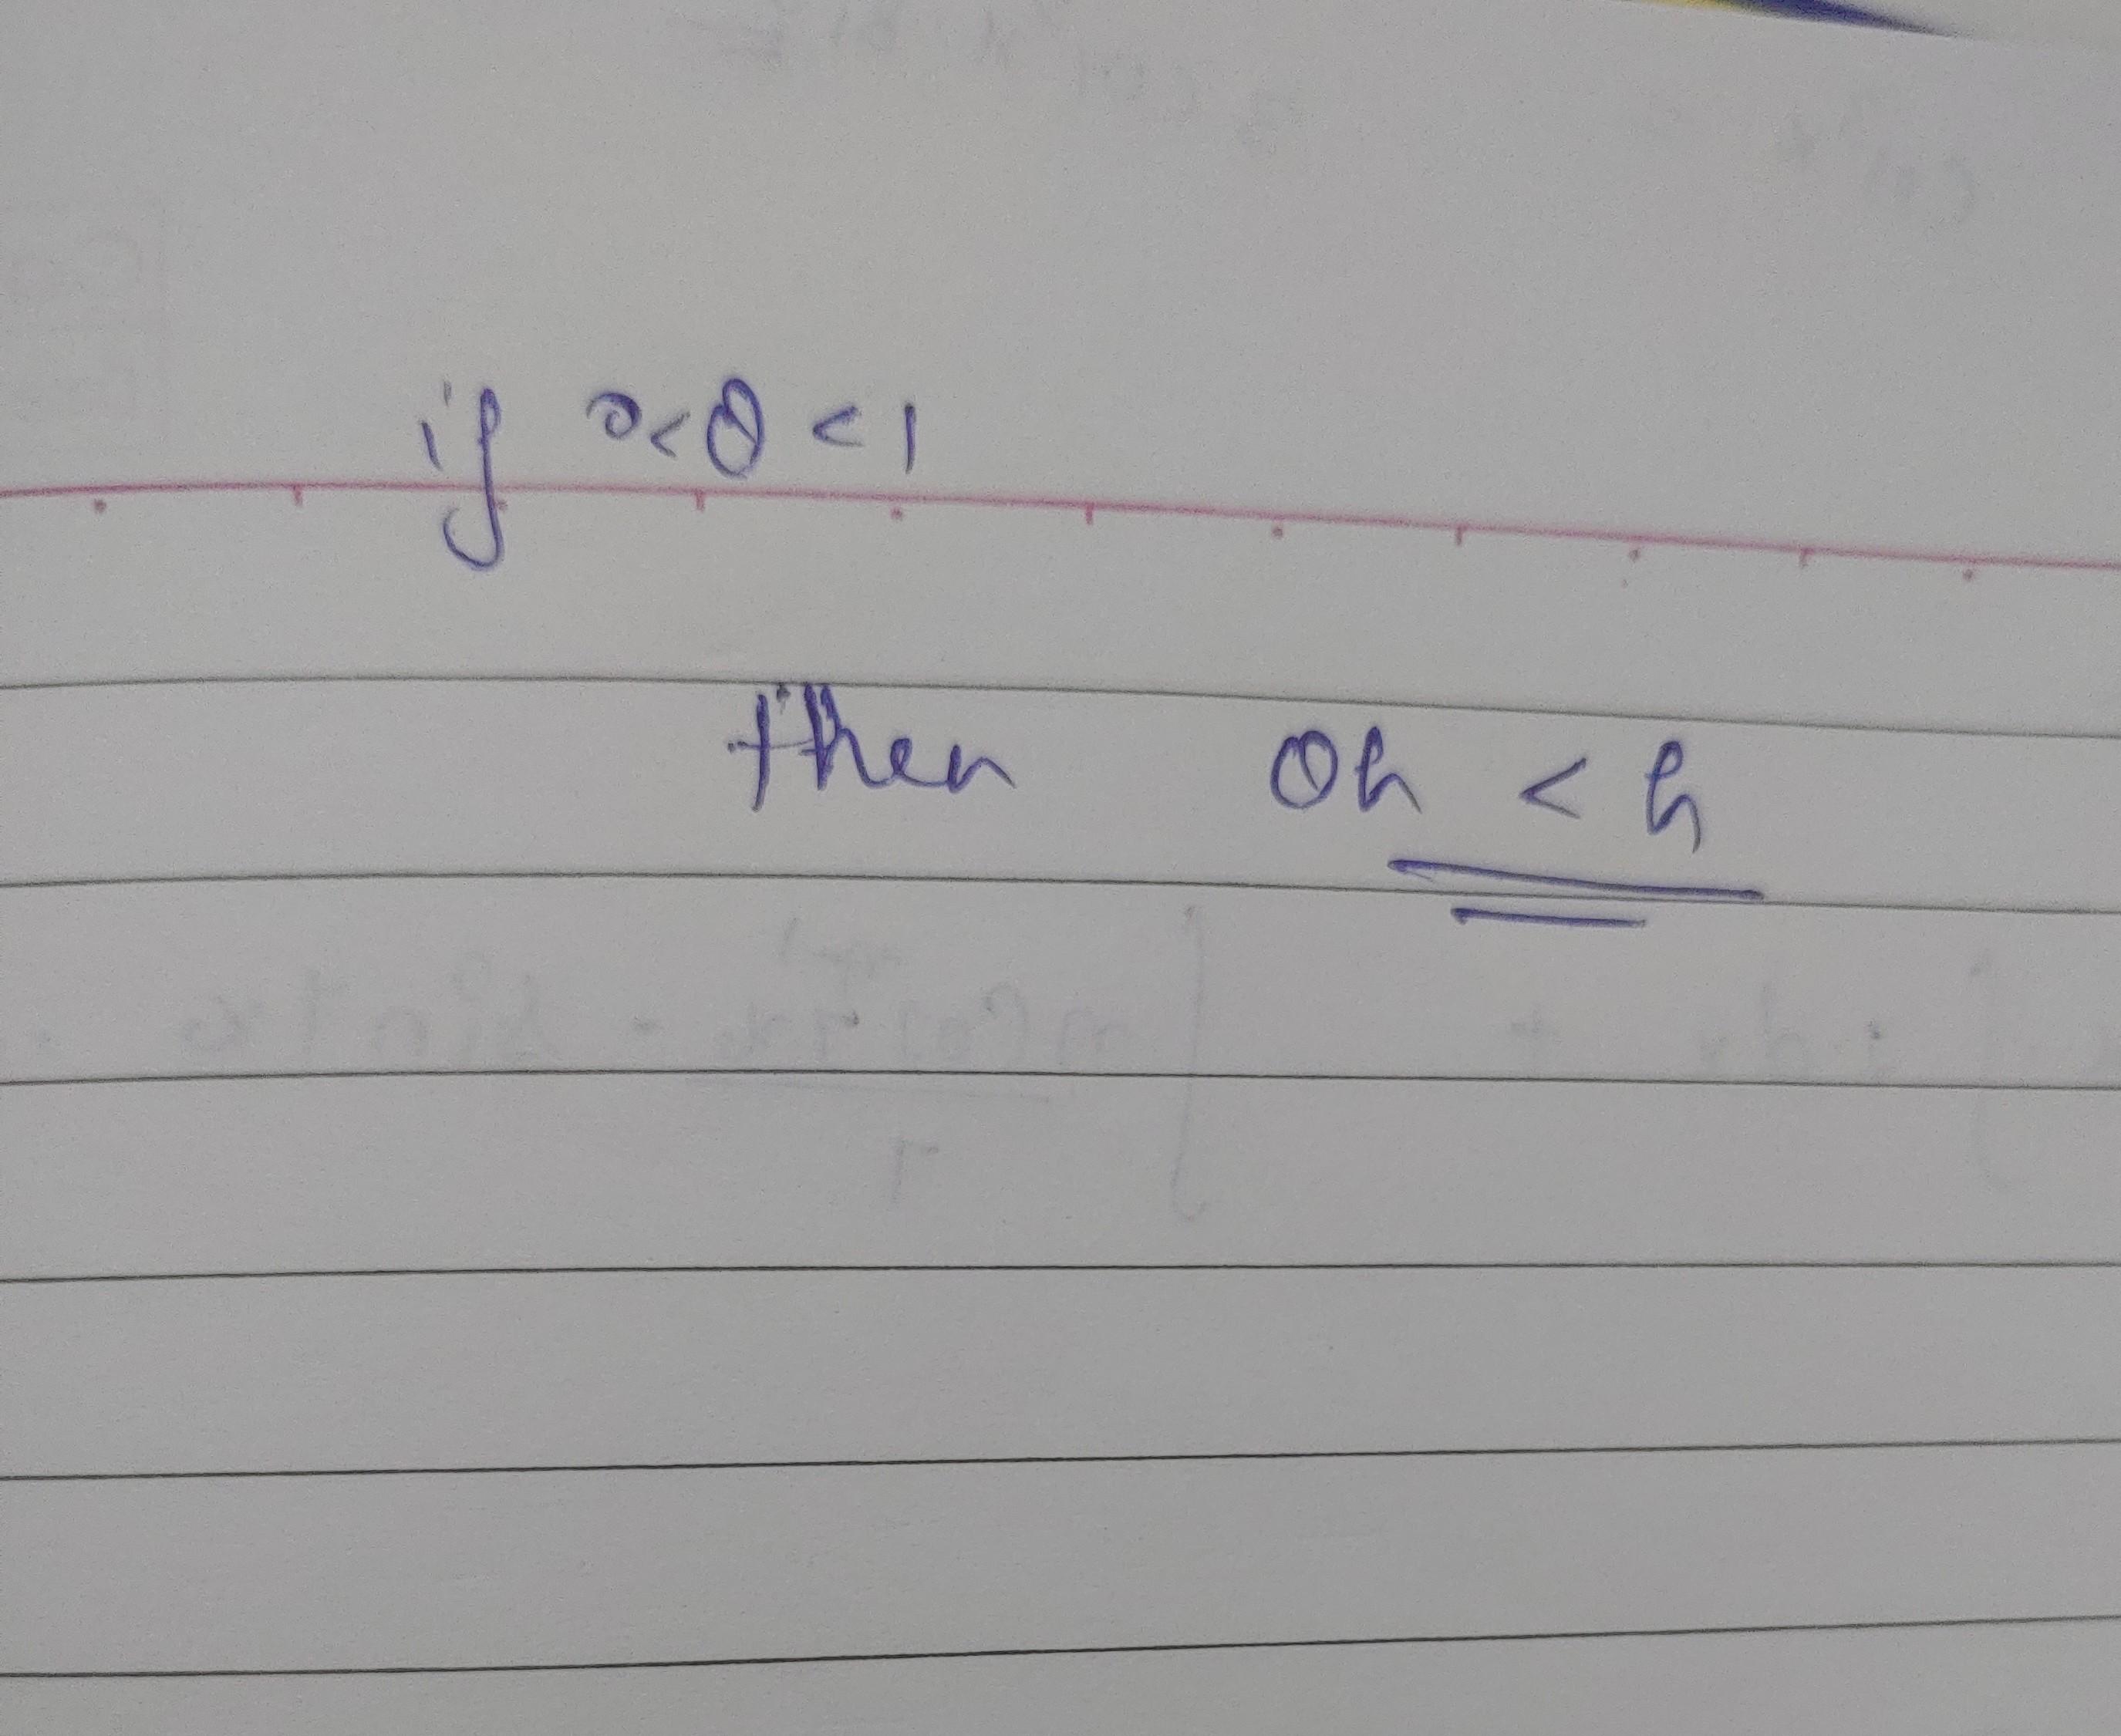 if 0<θ<1
then θh < h